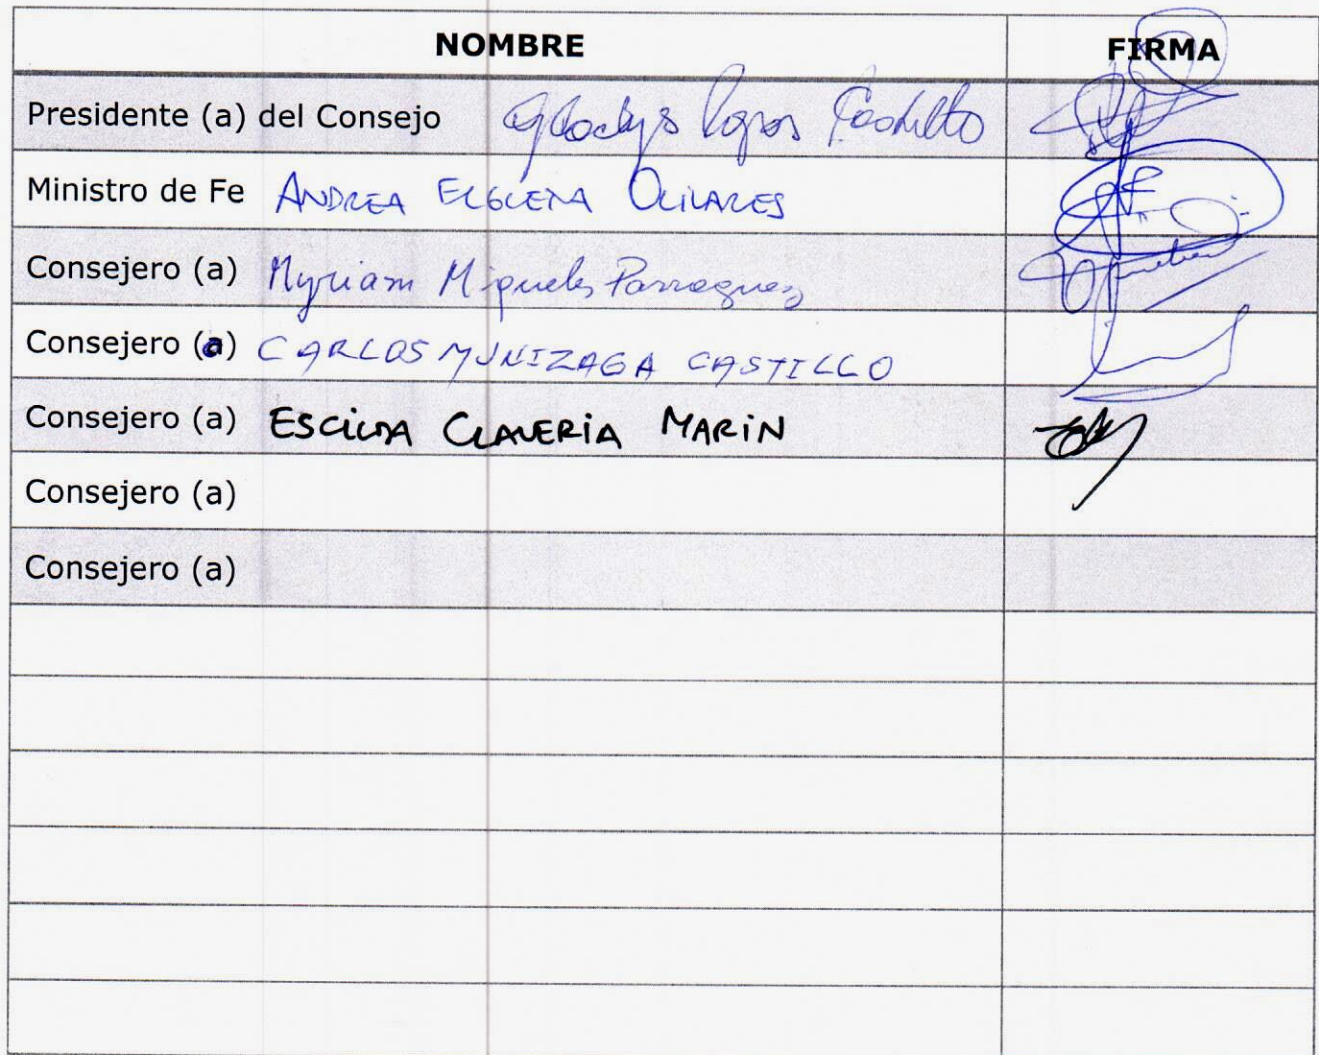 NOMBRE FIRMA
Presidente (a) del Consejo Gladys Castillo
Ministro de Fe ANDREA OLIVARES
Consejero (a) Myriam Migueles Parraguez
Consejero (a) CARLOS MUNIZAGA CASTILLO
Consejero (a) ESCILDA CLAVERIA MARIN
Consejero (a)
Consejero (a)